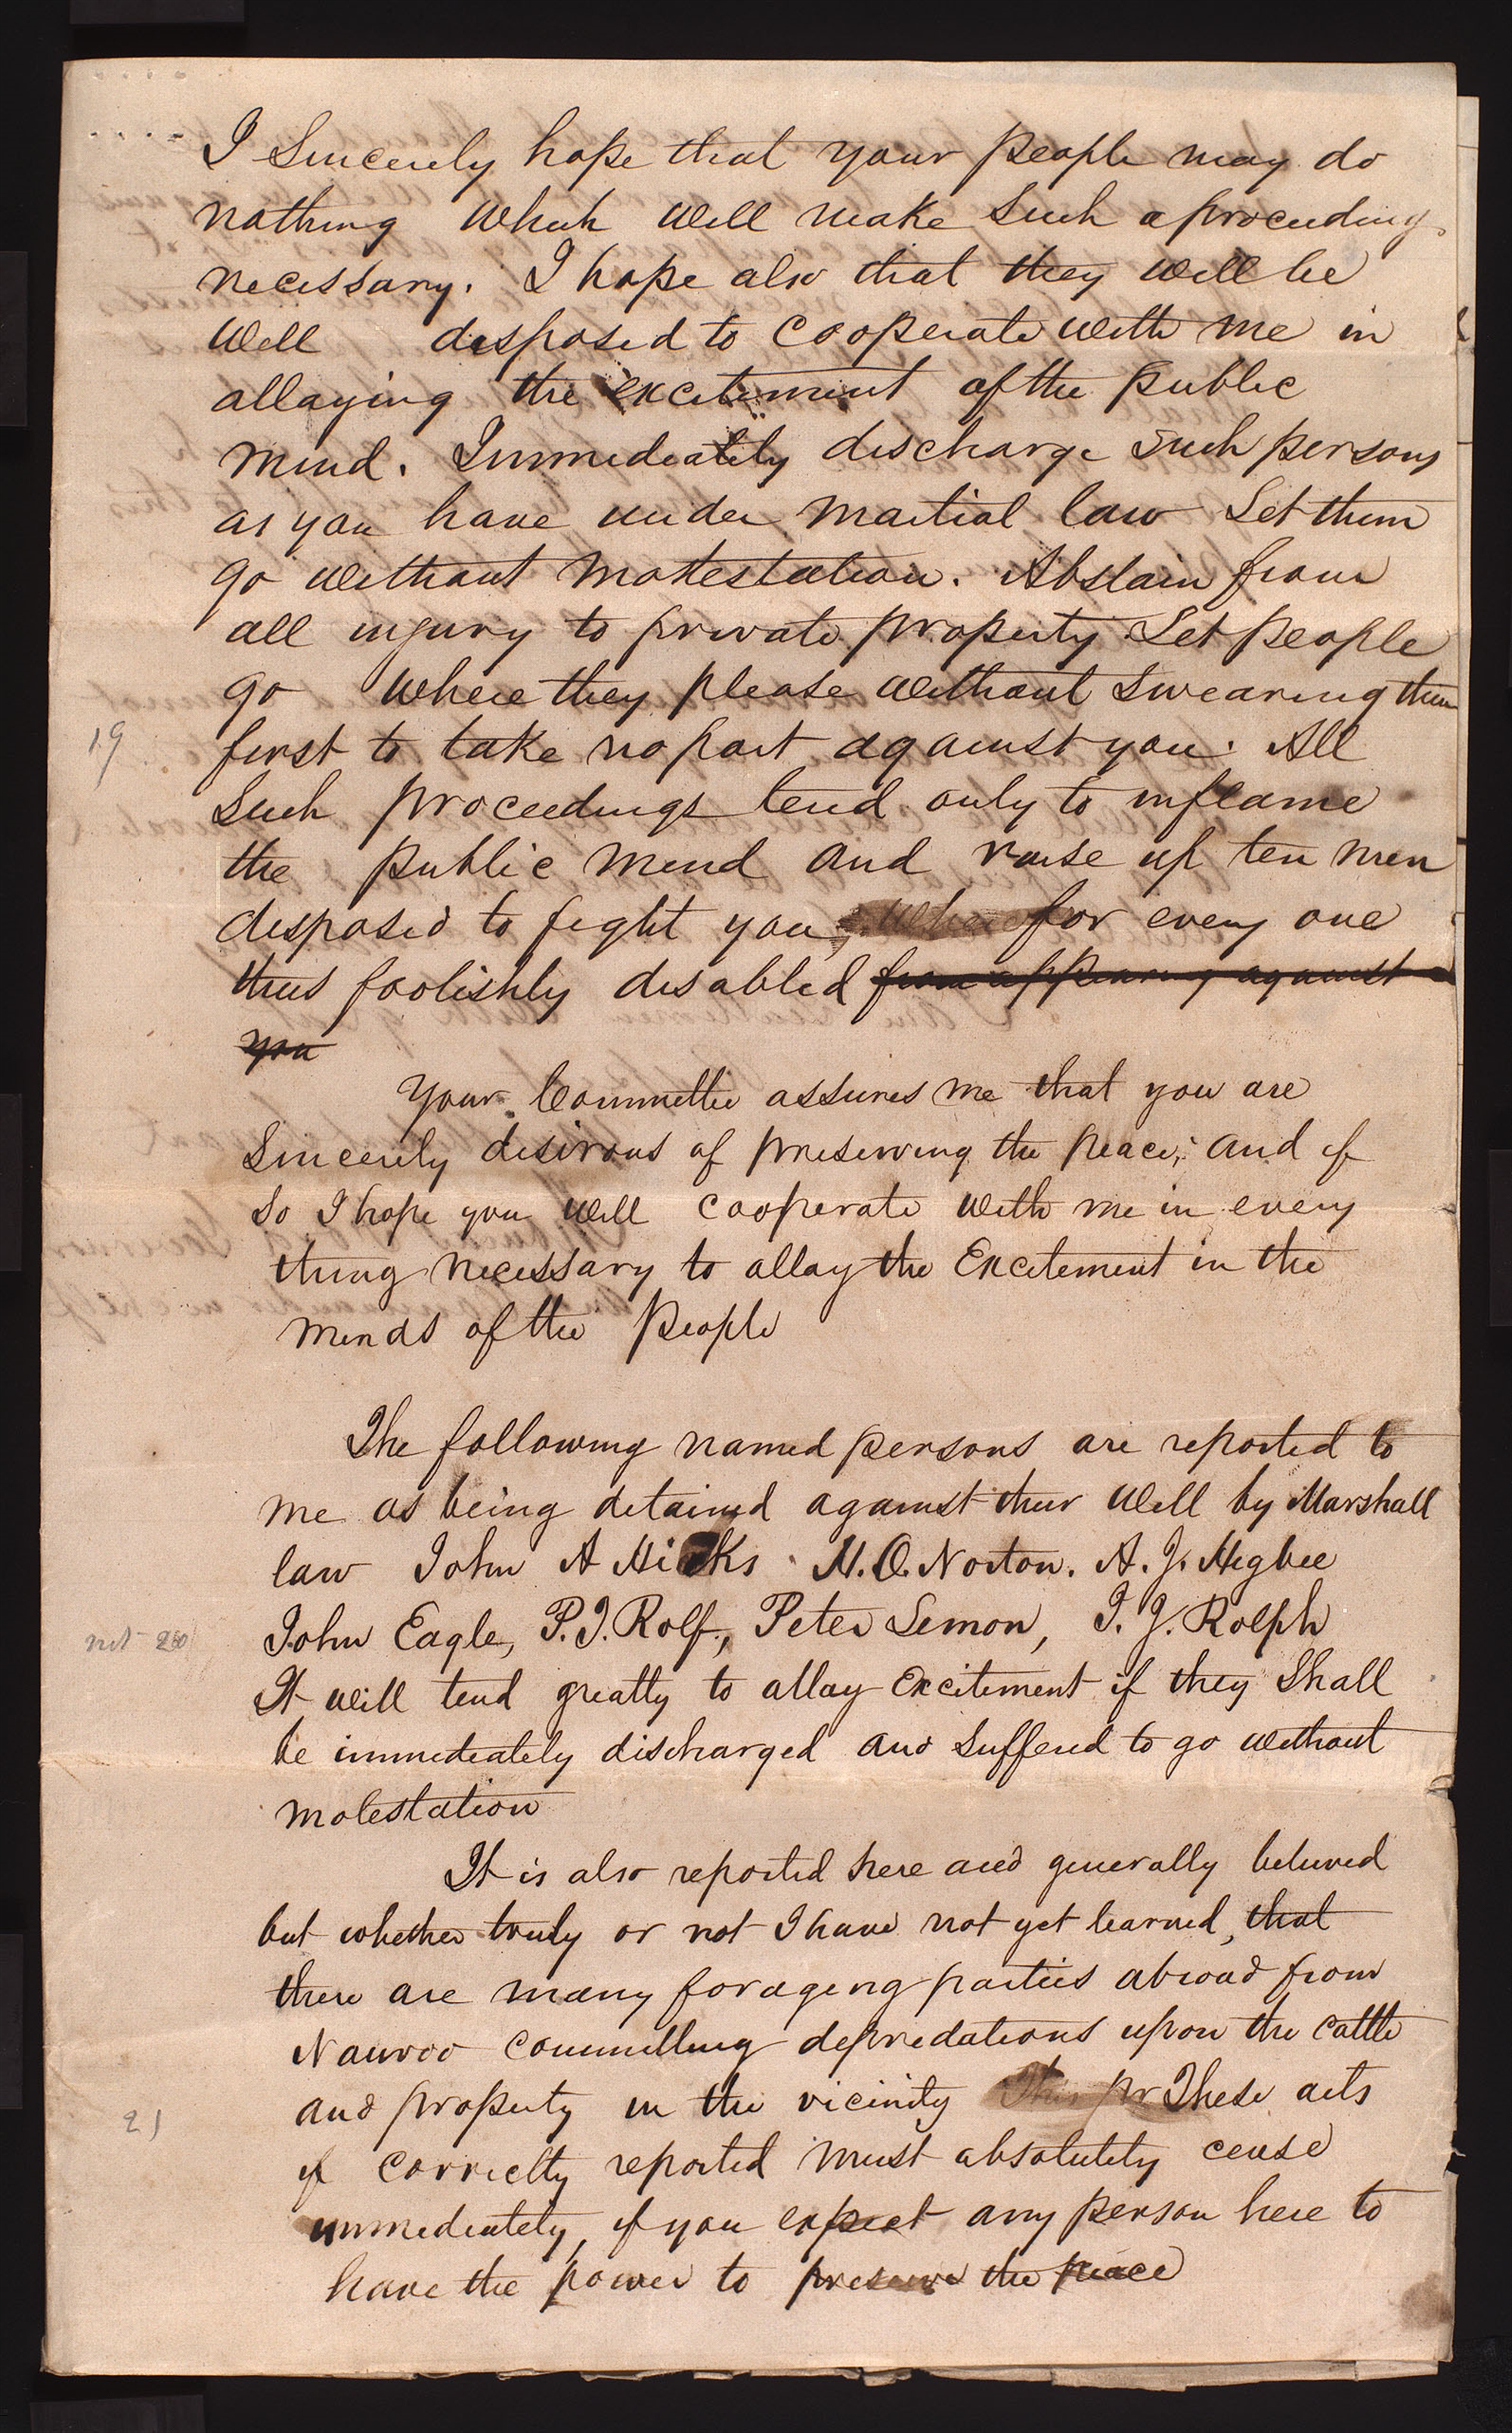 I Sincerely hope that your people may do
nothing which will make such a proceeding
necessary. I hope also that they will be
well disposed to cooperate with me in
allaying the excitement of the public
mind. Immediately discharge such persons
as you have under martial law Let them
go without molestation. Abstain from
all injury to private property. Let people
go where they please without swearing them
19
first to take no part against you. All
such proceedings tend only to inflame
the public mind and raise up ten men
disposed to fight you, where for every one
thus foolishly disabled from appearing against
you
Your Committee assures me that you are
Sincerely desirous of preserving the peace; and if
so I hope you will cooperate with me in every
thing necessary to allay the Excitement in the
minds of the People
The following named persons are reported to
me as being detained against their will by Marshall
law John A Hicks H. O. Norton. A. J. Higbee
not 20
John Eagle, P. J. Rolf, Peter Lemon, T. J. Rolph
It will tend greatly to allay Excitement if they shall
be immediately discharged and suffered to go without
molestation
It is also reported here and generally believed
but whether truly or not I have not yet learned, that
there are many foraging parties abroad from
Nauvoo committing depredations upon the cattle
and property in the vicinity This pr These acts
21
if correctly reported must absolutely cease
immediately, if you expect any person here to
have the power to preserve the peace